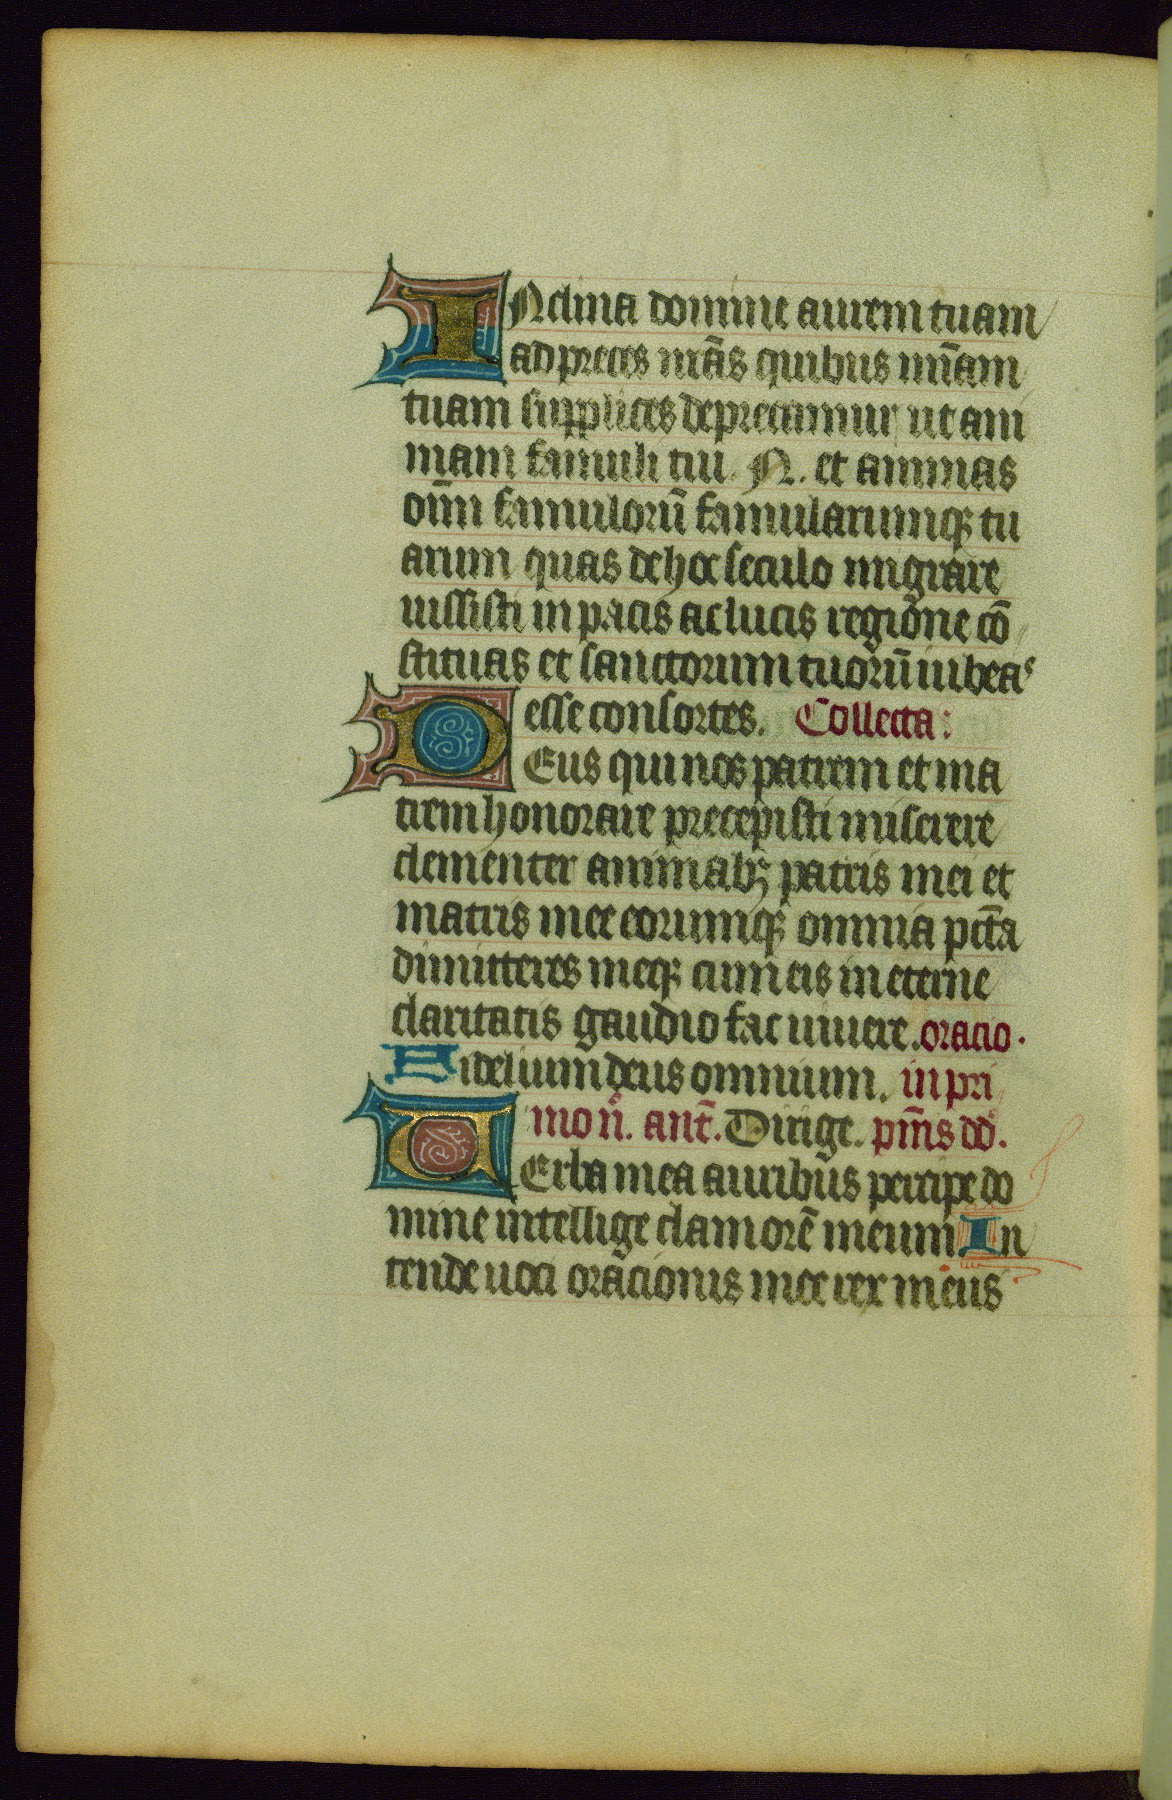 INclina domine aurem tuam
ad preces nr̄as quibus mīam
tuam supplices deprecamur ut ani
mam famuli tui. N. et animas
oīm famulorū famularumqꝫ tu
arum quas de hoc seculo migrare
iussisti in pacis ac lucis regione cō
stituas et sanctorum tuorū iubeas
esse consortes. Collecta:
DEus qui nos patrem et ma
trem honorare precepisti miserere
clementer animabꝫ patris mei et
matris mee eorumqꝫ omnia pctā
dimitteres meqꝫ cum eis in eterne
claritatis gaudio fac uiuere. oracio.
Fidelium deus omnium. in pri
mo n̊. ant̄. Dirige. pm̄s dd̊.
UErba mea auribus percipe do
mine intellige clamorē meum. In
tende uoci oracionis mee rex meus